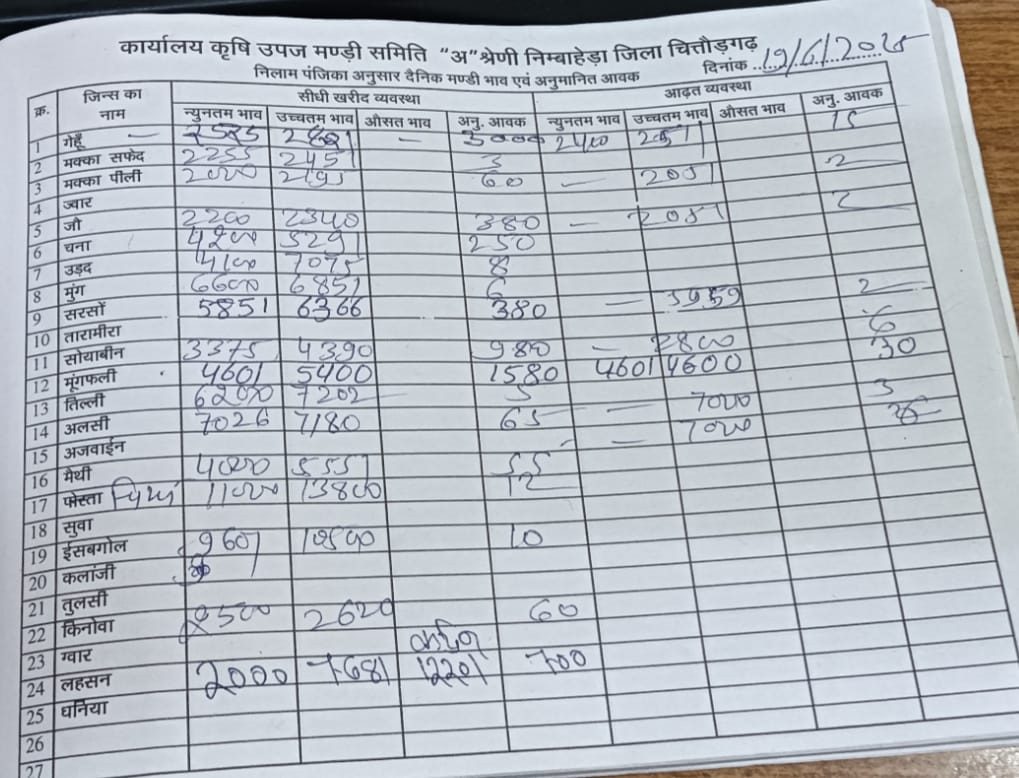 कार्यालय कृषि उपज मण्ड़ी समिति "अ" श्रेणी निम्बाहेड़ा जिला चित्तौड़गढ़
निलाम पंजिका अनुसार दैनिक मण्डी भाव एवं अनुमानित आवक दिनांक 19/6/2025
क्र. जिन्स का नाम सीधी खरीद व्यवस्था आढ़त व्यवस्था
न्युनतम भाव उच्चतम भाव औसत भाव अनु. आवक न्युनतम भाव उच्चतम भाव औसत भाव अनु. आवक
1 गेहूँ — — 3000 2400 15
2 मक्का सफेद 2255 2451 3
3 मक्का पीली 2000 2195 60 — 2051 2
4 ज्वार
5 जौ 2200 2340 380 — 2
6 चना 4200 5291 250
7 उड़द 4100 7075 8
8 मुंग 6600 6851 6
9 सरसों 5851 6366 380 — 2
10 तारामीरा
11 सोयाबीन 3375 4390 980 — 6
12 मूंगफली 4601 5400 1580 4601 4600 30
13 तिल्ली 6200 7202 5 — 7000 3
14 अलसी 7026 7180 65 — 7000
15 अजवाईन
16 मैथी 4000 5551 55
17 पोस्ता 11000 13800 12
18 सुवा
19 ईसबगोल 9601 10
20 कलांजी
21 तुलसी
22 किनोवा 2500 2620 60
23 ग्वार
24 लहसन 2000 7681 12201 700
25 धनिया
26
27